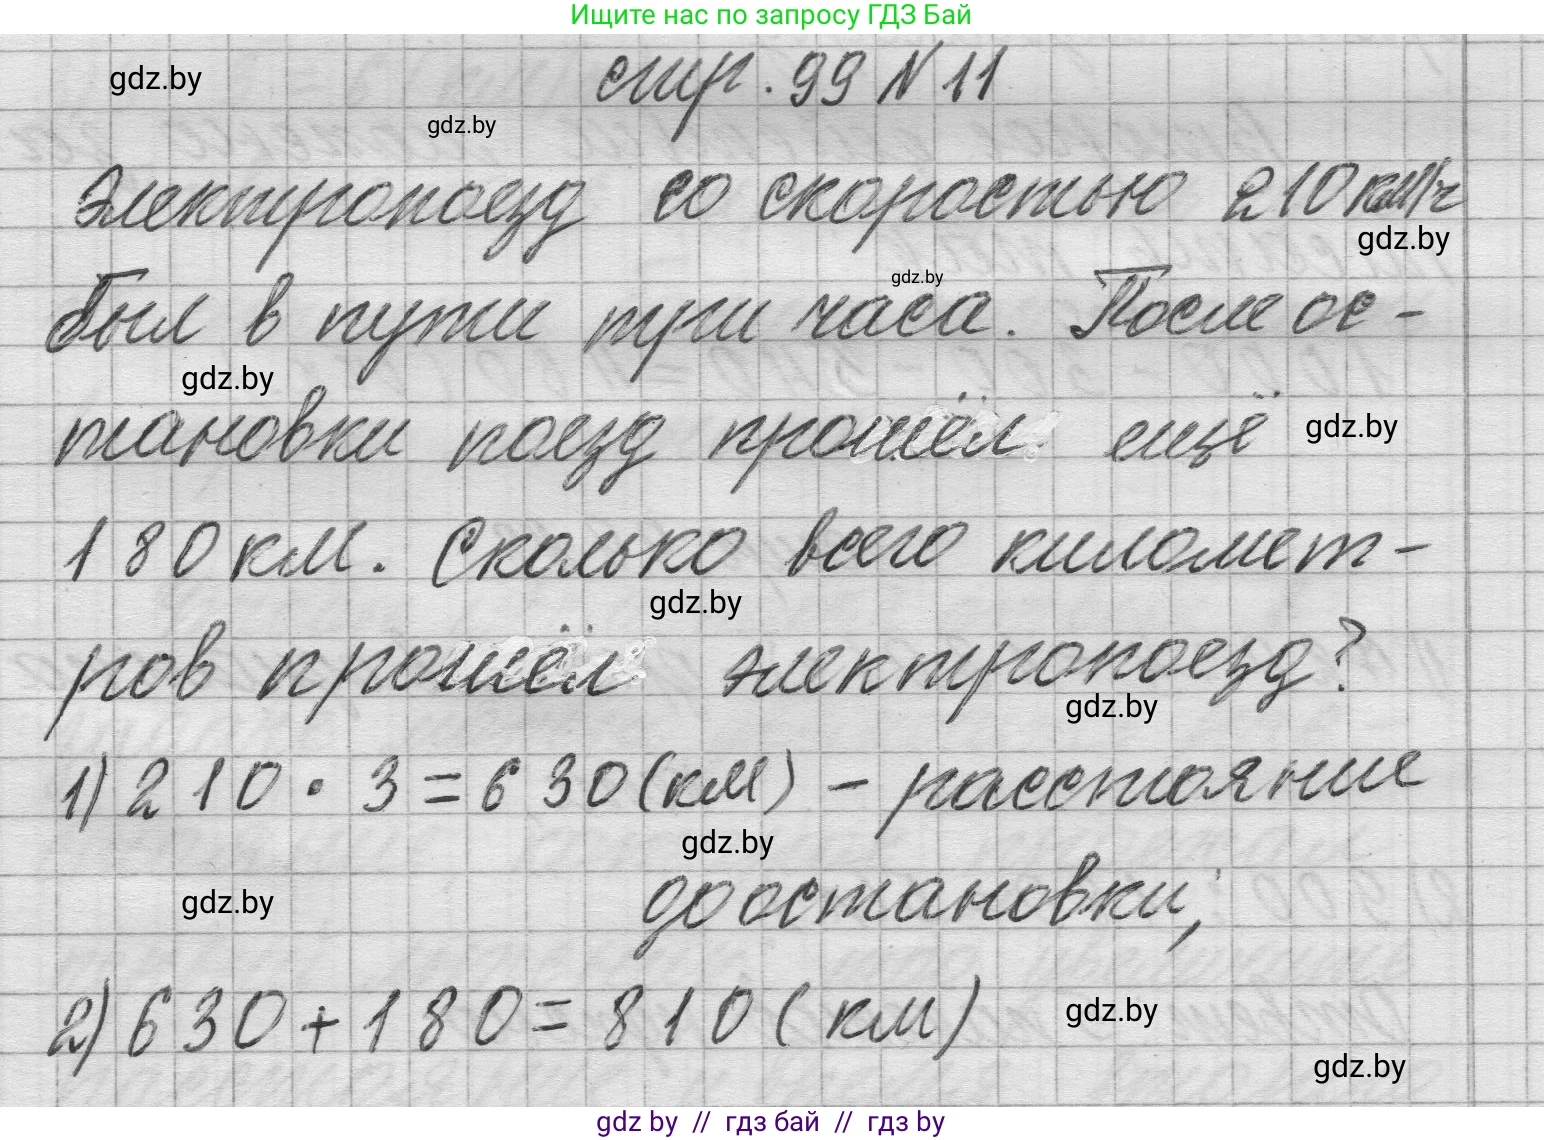 Ищите нас по запросу ГДЗ Бай
стр. 99 N 11
gdz.by
gdz.by
Электропоезд со скоростью 210 км/ч
gdz.by
gdz.by
был в пути три часа. После ос-
gdz.by
тановки поезд прошёл ещё
gdz.by
180 км. Сколько всего километ-
gdz.by
ров прошёл электропоезд?
gdz.by
1) 210 · 3 = 630 (км) – расстояние
gdz.by
до остановки;
gdz.by
2) 630 + 180 = 810 (км)
gdz.by
gdz.by
gdz by // гдз бай // гдз by